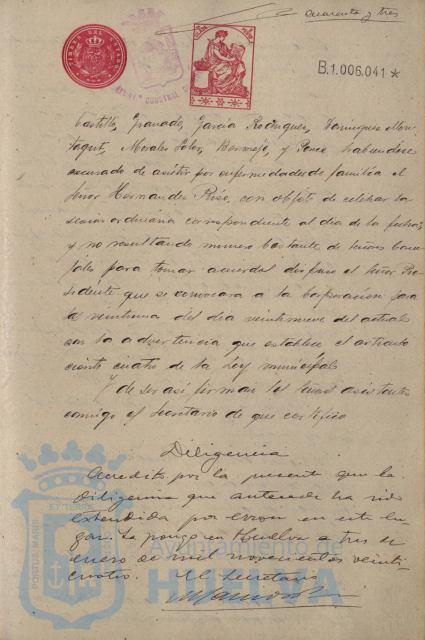 Cuarenta y tres
TIMBRE DEL ESTADO
B.1.006.041 *
Castillo, Granado, García Rodríguez, Domínguez Mon-
taqut, Morales Soler, Bermejo, y Ponce habiendose
excusado de asistir por enfermedades de familia el
Señor Hernandez Riso, con objeto de celebrar la
sesion ordinaria correspondiente al dia de la fecha,
y no resultando numero bastante de señores Conce-
jales para tomar acuerdos dispuso el Señor Pre-
sidente que se convocara a la Corporacion para
las veintiuna del dia veintinueve del actual
con la advertencia que establece el articulo
ciento cuatro de la Ley municipal.
Y de ser asi firman los señores asistentes
conmigo el Secretario de que certifico
Diligencia
Acredito por la presente que la
diligencia que antecede ha sido
extendida por error en este lu-
gar. La pongo en Huelva a tres de
enero de mil novecientos veinti-
cuatro. El Secretario
PORTUS MARIS ET TERRÆ
Ayuntamiento de
HUELVA